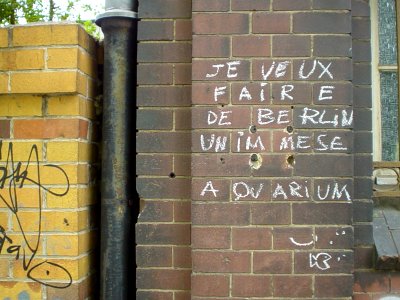 JE VEUX
FAIRE
DE BERLIN
UN IMMESE
AQUARIUM